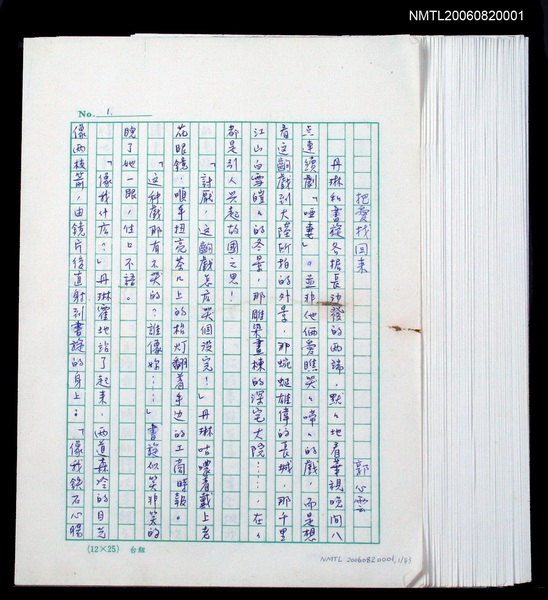 NMTL20060820001
No. 1.
把愛找回來
郭心雲
丹琳和書旋各據長沙發的兩端，默默地看華視晚間八
點連續劇「啞妻」。並非他倆愛瞧哭哭啼啼的戲，而是想
看這齣戲到大陸所拍的外景，那蜿蜒雄偉的長城，那千里
江山白雪皚皚的冬景，那雕梁畫棟的深宅大院……，在在
都是引人興起故國之思！
「討厭，這齣戲怎麼哭個沒完！」丹琳咕噥着戴上老
花眼鏡，順手扭亮茶几上的枱灯翻着手边的工商時報。
「這种戲那有不哭的？誰像妳……」書旋似笑非笑的
睨了她一眼，住口不語。
「像我什麼？」丹琳霍地站了起來，兩道森冷的目光
像兩枝箭，由鏡片後直射到書旋的身上：「像我鉄石心腸
(12×25) 台組
NMTL 20060820001, 1/61